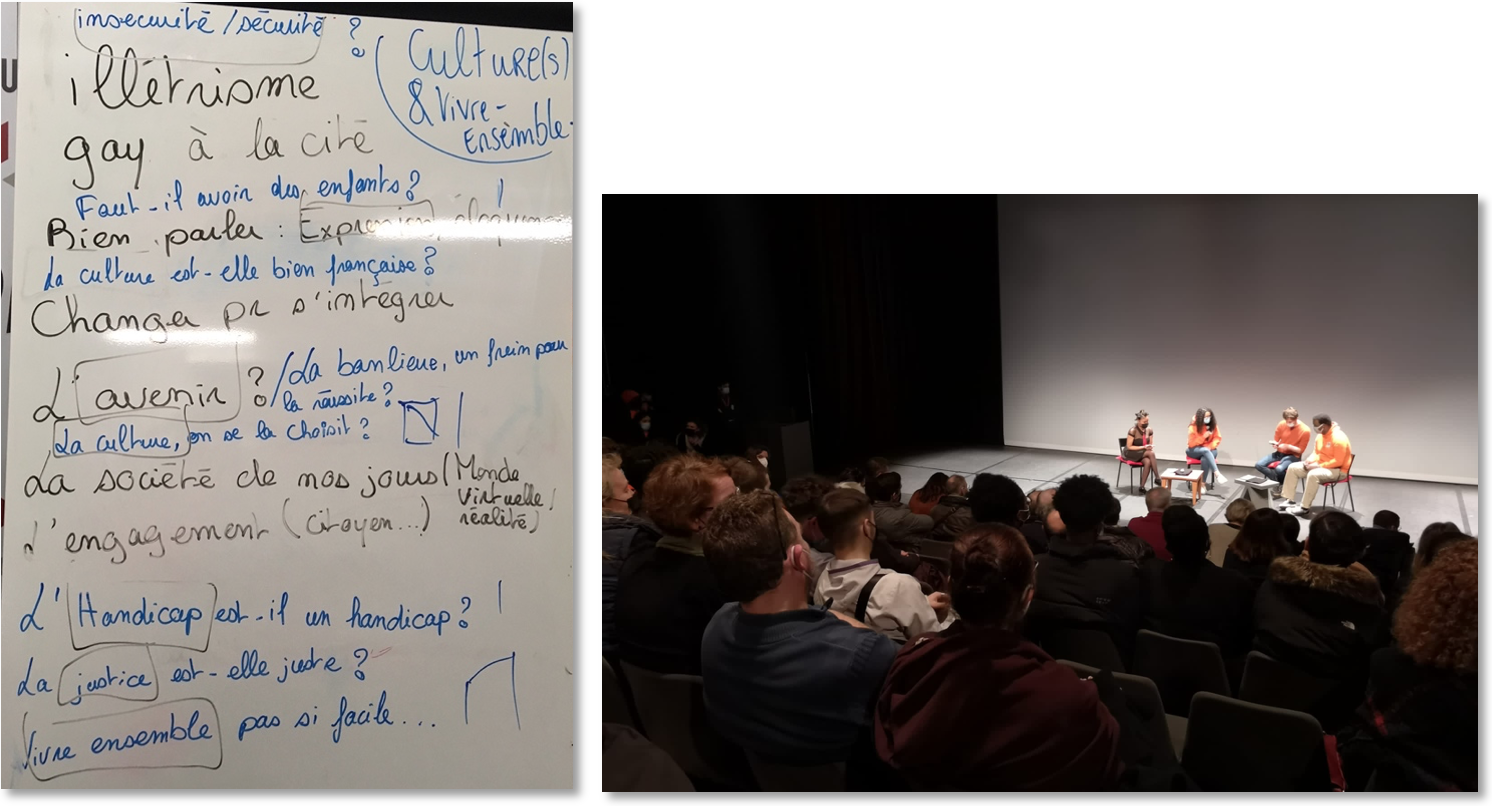 insécurité / sécurité ?
Culture(s)
& Vivre-
Ensemble.
illétrisme
gay à la cité
Faut-il avoir des enfants ?
Bien parler :
La culture est-elle bien française ?
Changer pr s'intégrer
L'avenir ? / La banlieue, un frein pour
la réussite ?
La culture, on se la choisit ?
La société de nos jours (Monde
Virtuelle /
réalité)
L'engagement (citoyen...)
L'Handicap est-il un handicap ?
La justice est-elle juste ?
Vivre ensemble pas si facile...